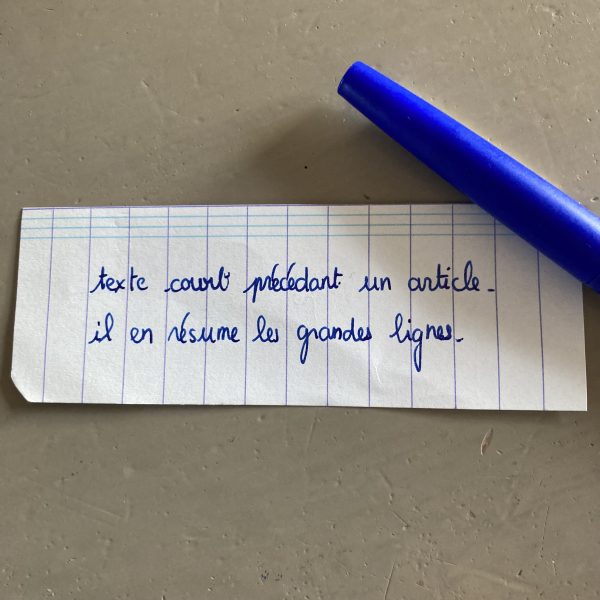 texte court précédant un article.
il en résume les grandes lignes.